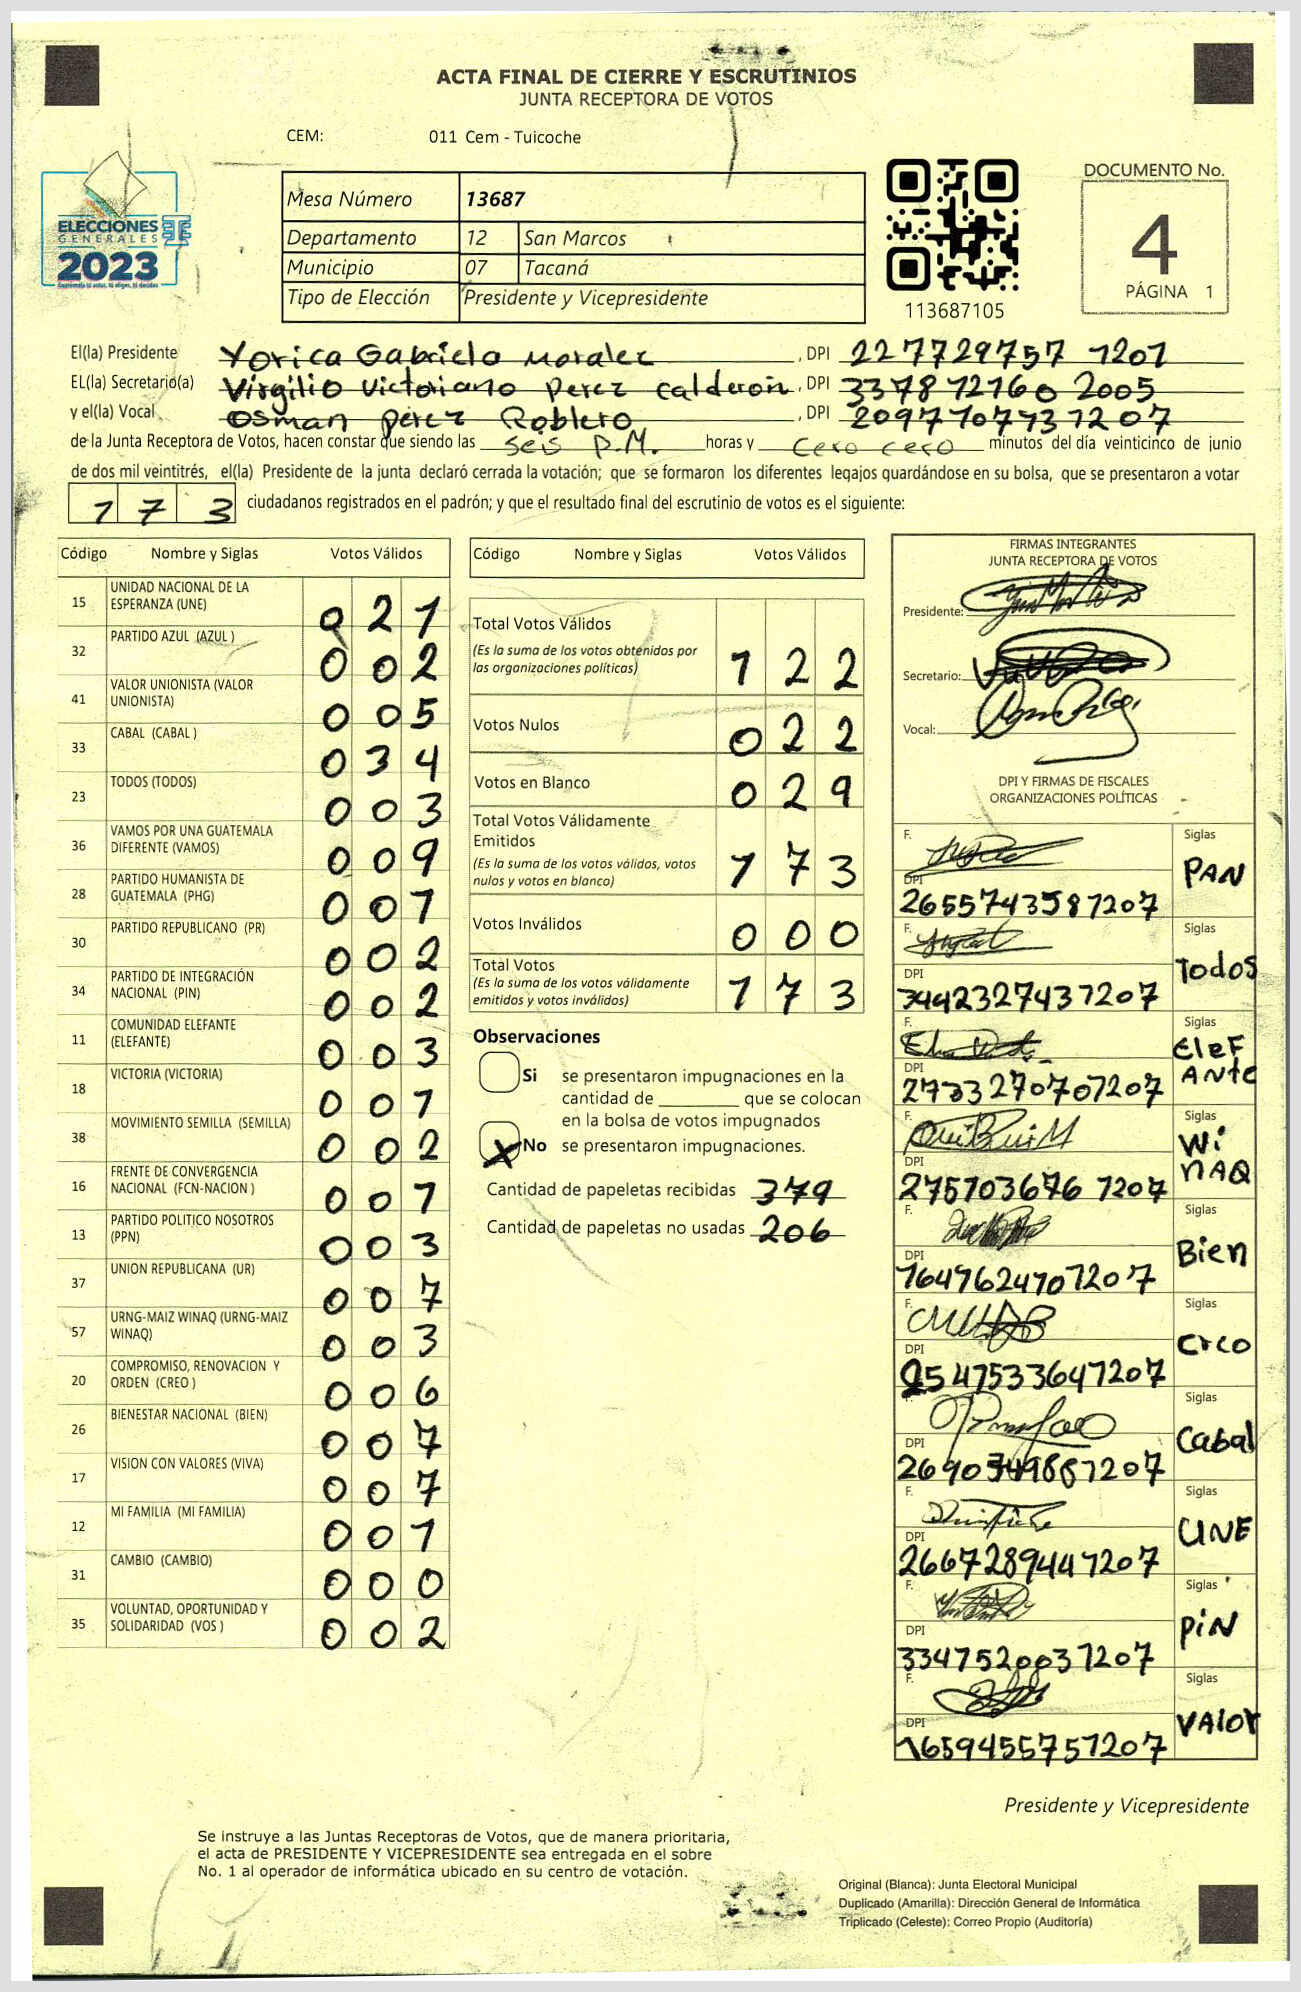 ACTA FINAL DE CIERRE Y ESCRUTINIOS
JUNTA RECEPTORA DE VOTOS
CEM: 011 Cem - Tuicoche
ELECCIONES
GENERALES
2023
Guatemala tú votas, tú eliges, tú decides
TSE
Mesa Número 13687
Departamento 12 San Marcos
Municipio 07 Tacaná
Tipo de Elección Presidente y Vicepresidente
113687105
DOCUMENTO No.
4
PÁGINA 1
El(la) Presidente Yorica Gabriela Moralez, DPI 227729757 1201
EL(la) Secretario(a) Virgilio Victoriano Perez Calderon, DPI 337872160 2005
y el(la) Vocal Osman perez Roblero, DPI 2097707731207
de la Junta Receptora de Votos, hacen constar que siendo las seis P.M. horas y cero cero minutos del día veinticinco de junio
de dos mil veintitrés, el(la) Presidente de la junta declaró cerrada la votación; que se formaron los diferentes legajos guardándose en su bolsa, que se presentaron a votar
173 ciudadanos registrados en el padrón; y que el resultado final del escrutinio de votos es el siguiente:
Código Nombre y Siglas Votos Válidos
15 UNIDAD NACIONAL DE LA ESPERANZA (UNE) 021
32 PARTIDO AZUL (AZUL ) 002
41 VALOR UNIONISTA (VALOR UNIONISTA) 005
33 CABAL (CABAL ) 034
23 TODOS (TODOS) 003
36 VAMOS POR UNA GUATEMALA DIFERENTE (VAMOS) 009
28 PARTIDO HUMANISTA DE GUATEMALA (PHG) 001
30 PARTIDO REPUBLICANO (PR) 002
34 PARTIDO DE INTEGRACIÓN NACIONAL (PIN) 002
11 COMUNIDAD ELEFANTE (ELEFANTE) 003
18 VICTORIA (VICTORIA) 001
38 MOVIMIENTO SEMILLA (SEMILLA) 002
16 FRENTE DE CONVERGENCIA NACIONAL (FCN-NACION ) 001
13 PARTIDO POLITICO NOSOTROS (PPN) 003
37 UNION REPUBLICANA (UR) 007
57 URNG-MAIZ WINAQ (URNG-MAIZ WINAQ) 003
20 COMPROMISO, RENOVACION Y ORDEN (CREO ) 006
26 BIENESTAR NACIONAL (BIEN) 007
17 VISION CON VALORES (VIVA) 007
12 MI FAMILIA (MI FAMILIA) 001
31 CAMBIO (CAMBIO) 000
35 VOLUNTAD, OPORTUNIDAD Y SOLIDARIDAD (VOS ) 002
Código Nombre y Siglas Votos Válidos
Total Votos Válidos
(Es la suma de los votos obtenidos por
las organizaciones políticas) 122
Votos Nulos 022
Votos en Blanco 029
Total Votos Válidamente
Emitidos
(Es la suma de los votos válidos, votos
nulos y votos en blanco) 173
Votos Inválidos 000
Total Votos
(Es la suma de los votos válidamente
emitidos y votos inválidos) 173
Observaciones
Si se presentaron impugnaciones en la
cantidad de ________ que se colocan
en la bolsa de votos impugnados
X No se presentaron impugnaciones.
Cantidad de papeletas recibidas 379
Cantidad de papeletas no usadas 206
FIRMAS INTEGRANTES
JUNTA RECEPTORA DE VOTOS
Presidente:
Secretario:
Vocal:
DPI Y FIRMAS DE FISCALES
ORGANIZACIONES POLÍTICAS
F. Siglas
PAN
DPI
2655743581207
F. Siglas
Todos
DPI
3442327431207
F. Siglas
EleF
ANte
DPI
2733270701207
F. Siglas
Wi
NAQ
DPI
275703676 1207
F. Siglas
Bien
DPI
1649624701207
F. Siglas
Creo
DPI
2547533641207
F. Siglas
Cabal
DPI
F. Siglas
UNE
DPI
2667289441207
F. Siglas
PiN
DPI
3347520031207
F. Siglas
VAlor
DPI
1659455751207
Presidente y Vicepresidente
Se instruye a las Juntas Receptoras de Votos, que de manera prioritaria,
el acta de PRESIDENTE Y VICEPRESIDENTE sea entregada en el sobre
No. 1 al operador de informática ubicado en su centro de votación.
Original (Blanca): Junta Electoral Municipal
Duplicado (Amarilla): Dirección General de Informática
Triplicado (Celeste): Correo Propio (Auditoría)